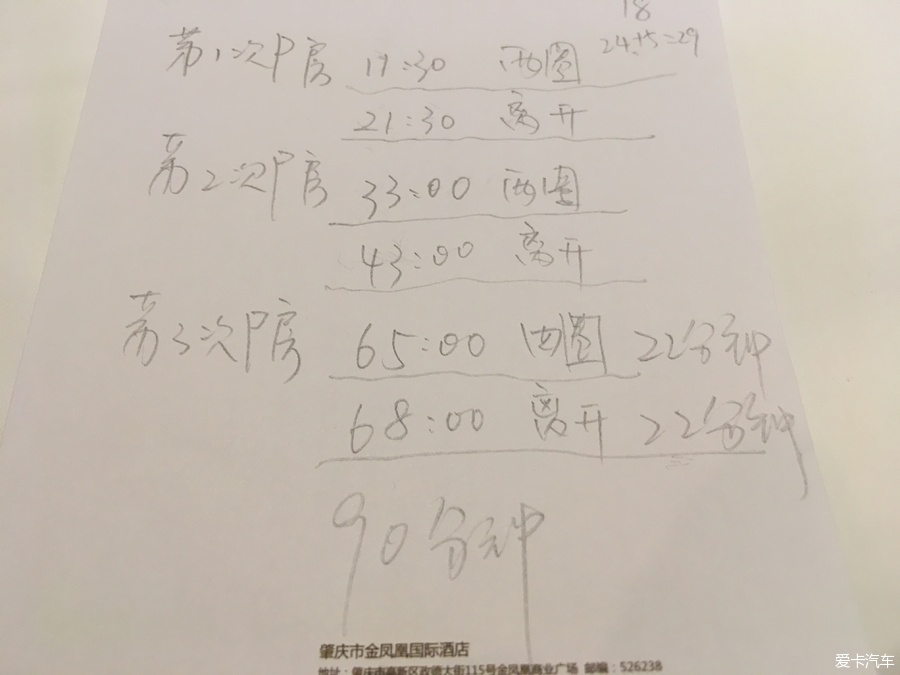 18
24+5=29
第1次P房 17:30 两圈
21:30 离开
第2次P房 33:00 两圈
43:00 离开
第3次P房 65:00 两圈 22分钟
68:00 离开 22分钟
90分钟
肇庆市金凤凰国际酒店
地址:肇庆市高新区政德大街115号金凤凰商业广场 邮编:526238
爱卡汽车